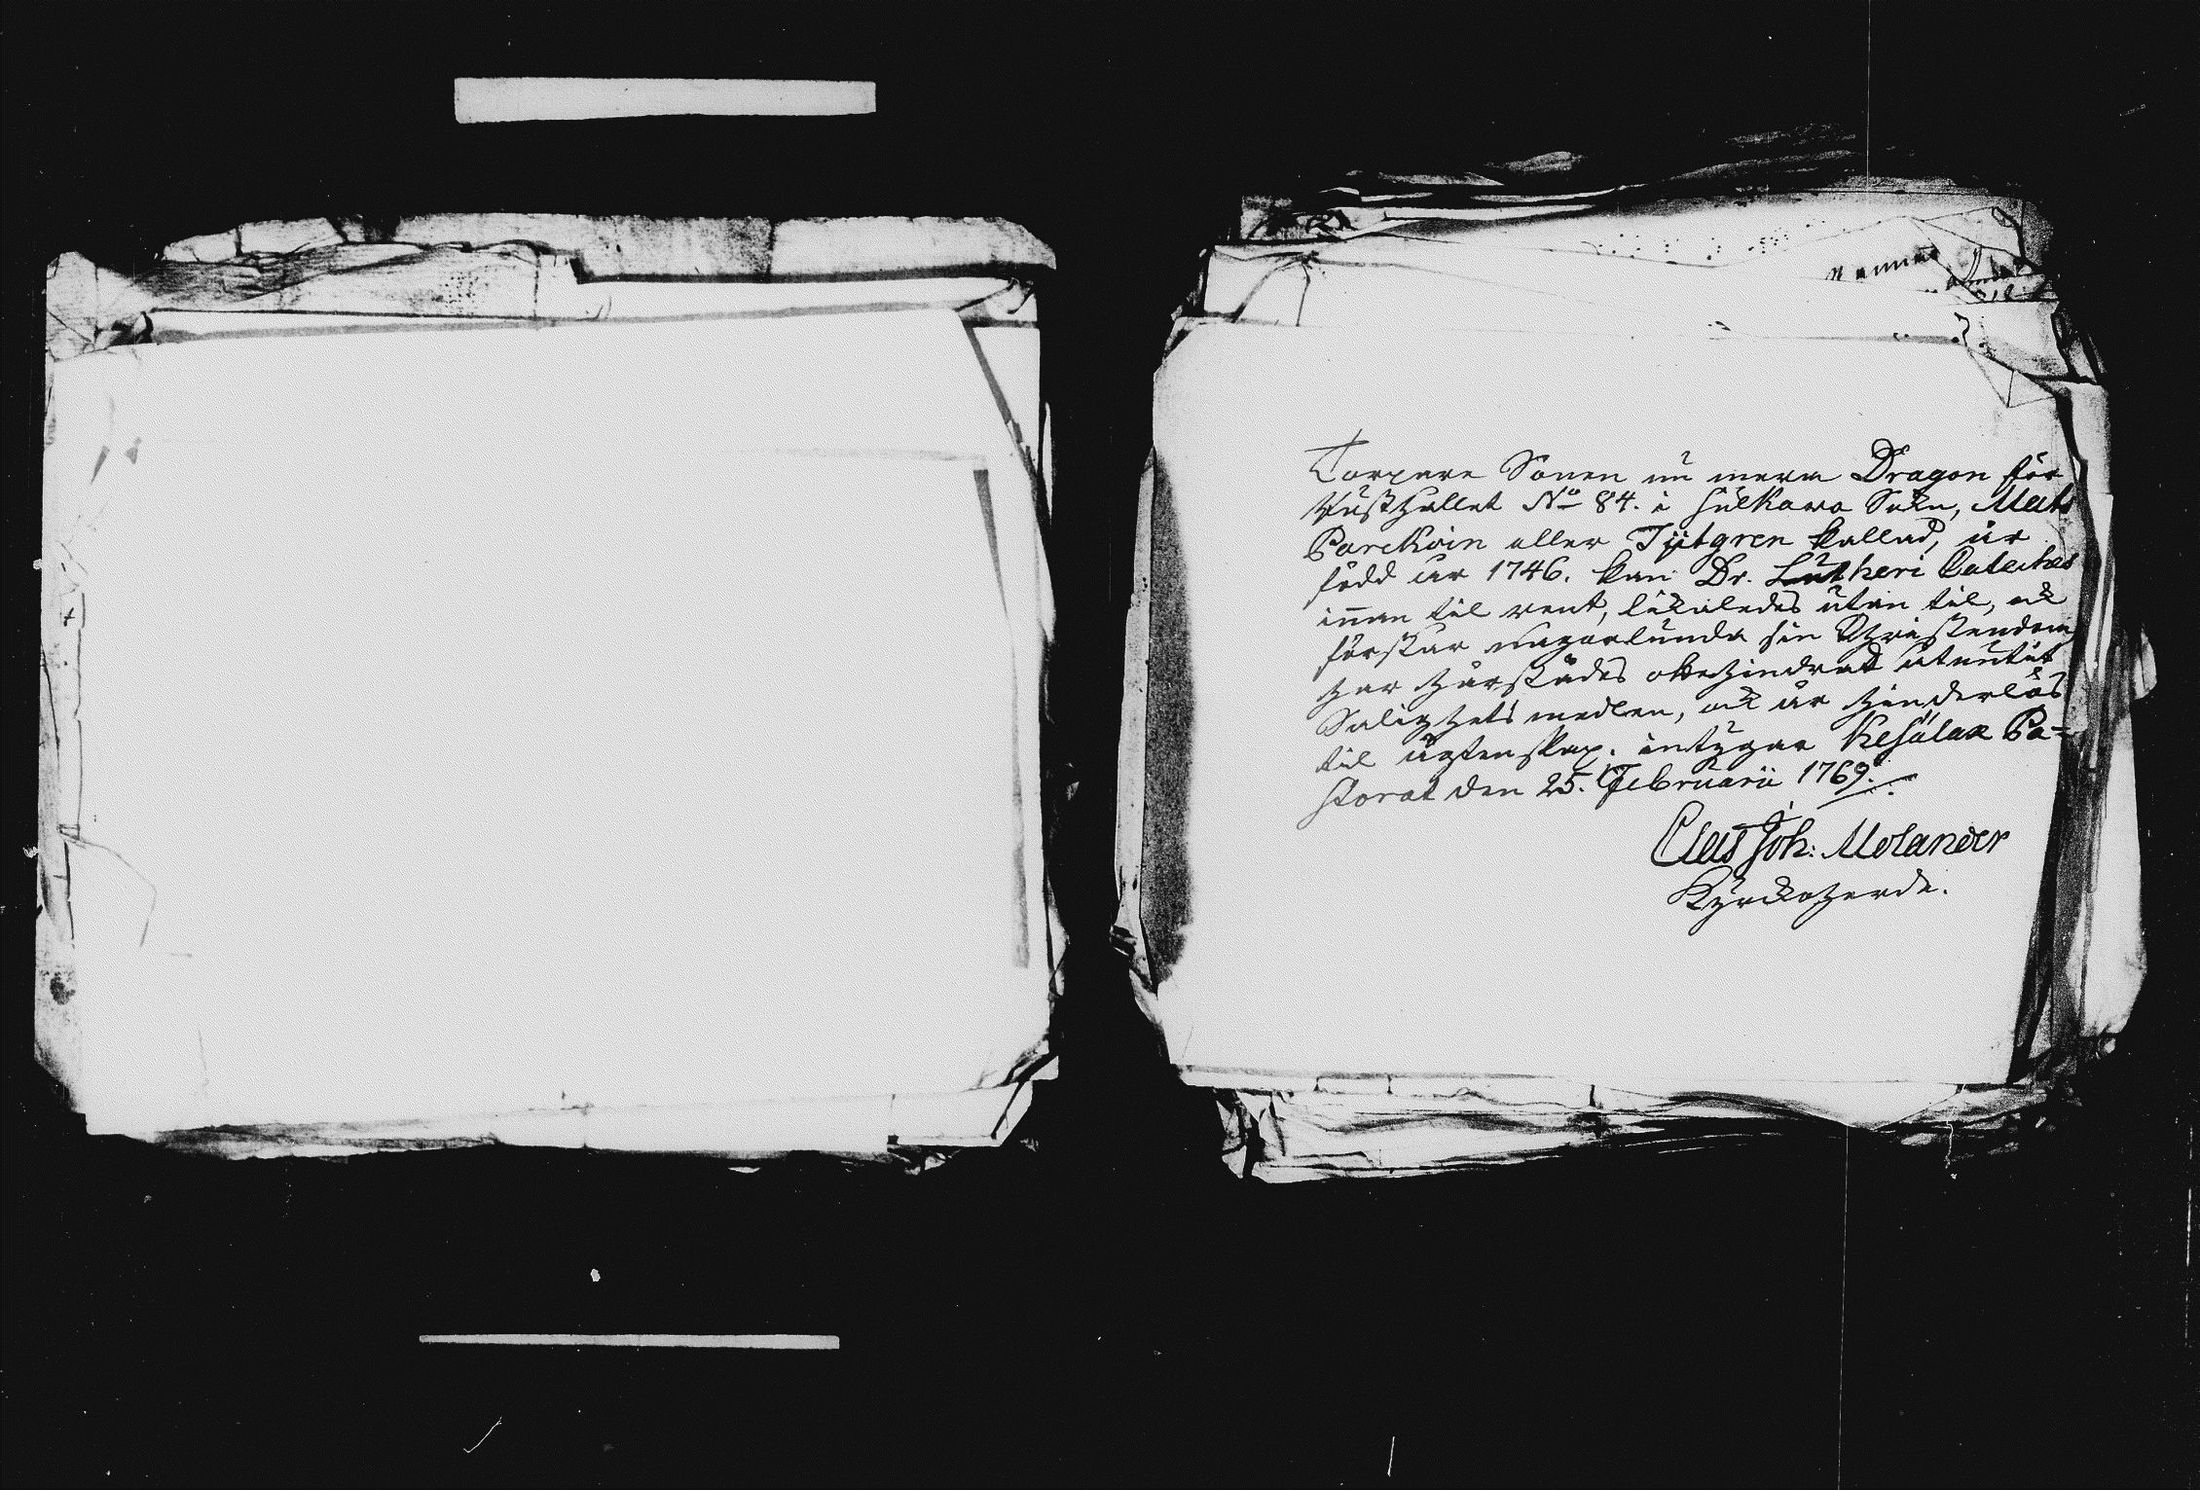 Torpare Sonen nu mera Dragon för
Rusthållet No 84. i Sulkawa Sokn, Mats
Parckoin eller Tÿtgren kallad, är
född år 1746. kan Dr. Lutheri Cateches
innan til rent, likaledes utan til, ock
förstår någorlunda sin Christendom
har härstädes obehindrat åtnutit
Salighets medlen, ock är hinderlös
til ägtenskap. intygar Kesälax Pa-
storat den 25. Februarii 1769.
Claes Joh: Molander
Kyrckoherde.